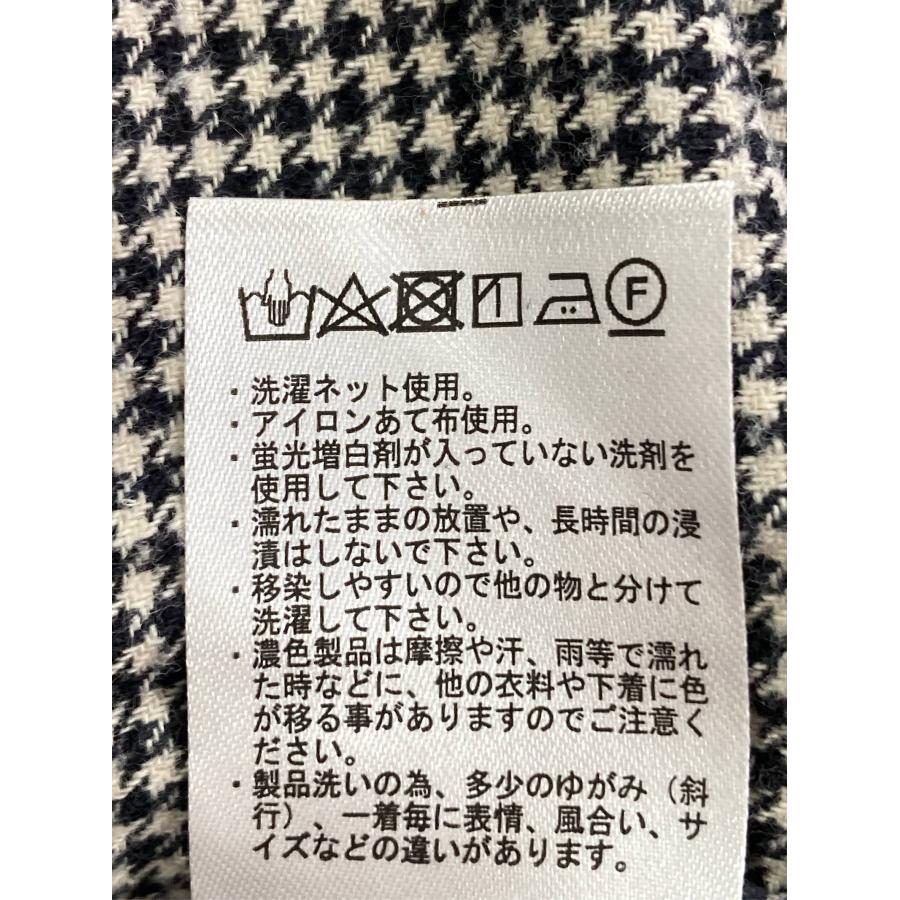 F
・洗濯ネット使用。
・アイロンあて布使用。
・蛍光増白剤が入っていない洗剤を
使用して下さい。
・濡れたままの放置や、長時間の浸
漬はしないで下さい。
・移染しやすいので他の物と分けて
洗濯して下さい。
・濃色製品は摩擦や汗、雨等で濡れ
た時などに、他の衣料や下着に色
が移る事がありますのでご注意く
ださい。
・製品洗いの為、多少のゆがみ（斜
行）、一着毎に表情、風合い、サ
イズなどの違いがあります。